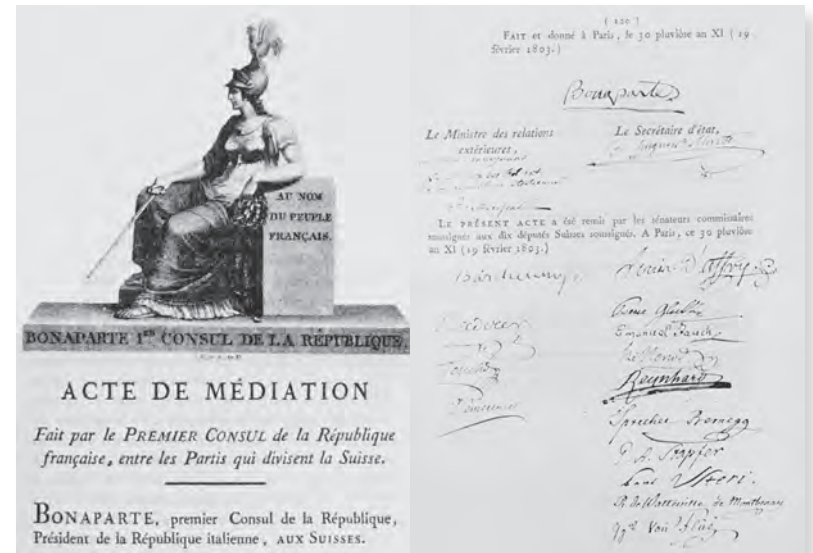 AU NOM
DU PEUPLE
FRANÇAIS.
BONAPARTE 1ER CONSUL DE LA RÉPUBLIQUE.
ACTE DE MÉDIATION
Fait par le PREMIER CONSUL de la République
française, entre les Partis qui divisent la Suisse.
BONAPARTE, premier Consul de la République,
Président de la République italienne, AUX SUISSES.
( 120 )
FAIT et donné à Paris, le 30 pluviôse an XI ( 19
février 1803.)
Bonaparte
Le Ministre des relations
extérieures,
Le Secrétaire d'état,
LE PRÉSENT ACTE a été remis par les sénateurs commissaires
soussignés aux dix députés Suisses soussignés. A Paris, ce 30 pluviôse
an XI (19 février 1803.)
Louis d'Affry
Emanuel Jauch
Reynhard
Sprecher Bernegg
P. A. Stapfer
Paul Usteri.
R. de Watteville de Montbenay
von Flüe